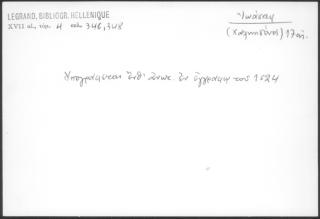 LEGRAND, BIBLIOGR. HELLENIQUE
XVII αἰ., τόμ. 4 σελ. 346, 348
Ἰωάσαφ
(Χαλκηδόνος) 17 αἰ.
Ὑπογράφεται ἐν ἐγγράφῳ τοῦ 1624